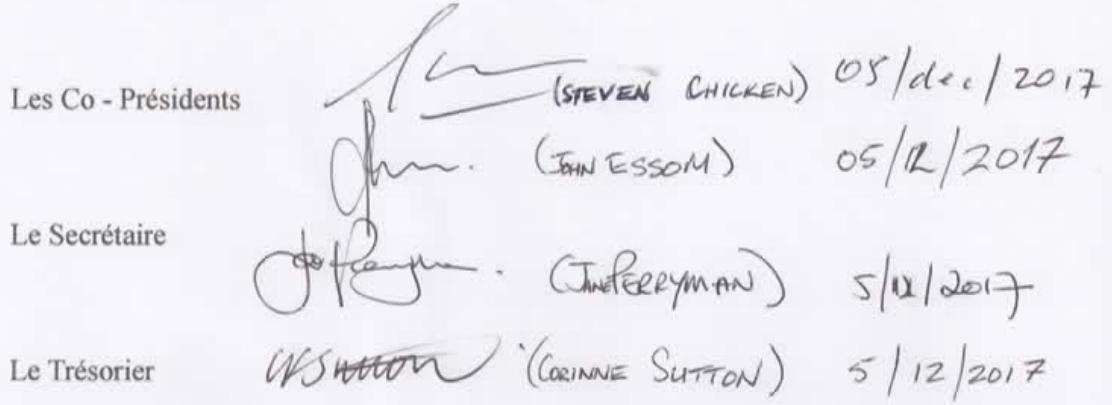 Les Co - Présidents (STEVEN CHICKEN) 05/dec/2017
(JOHN ESSOM) 05/12/2017
Le Secrétaire
(JANE PERRYMAN) 5/12/2017
Le Trésorier (CORINNE SUTTON) 5/12/2017